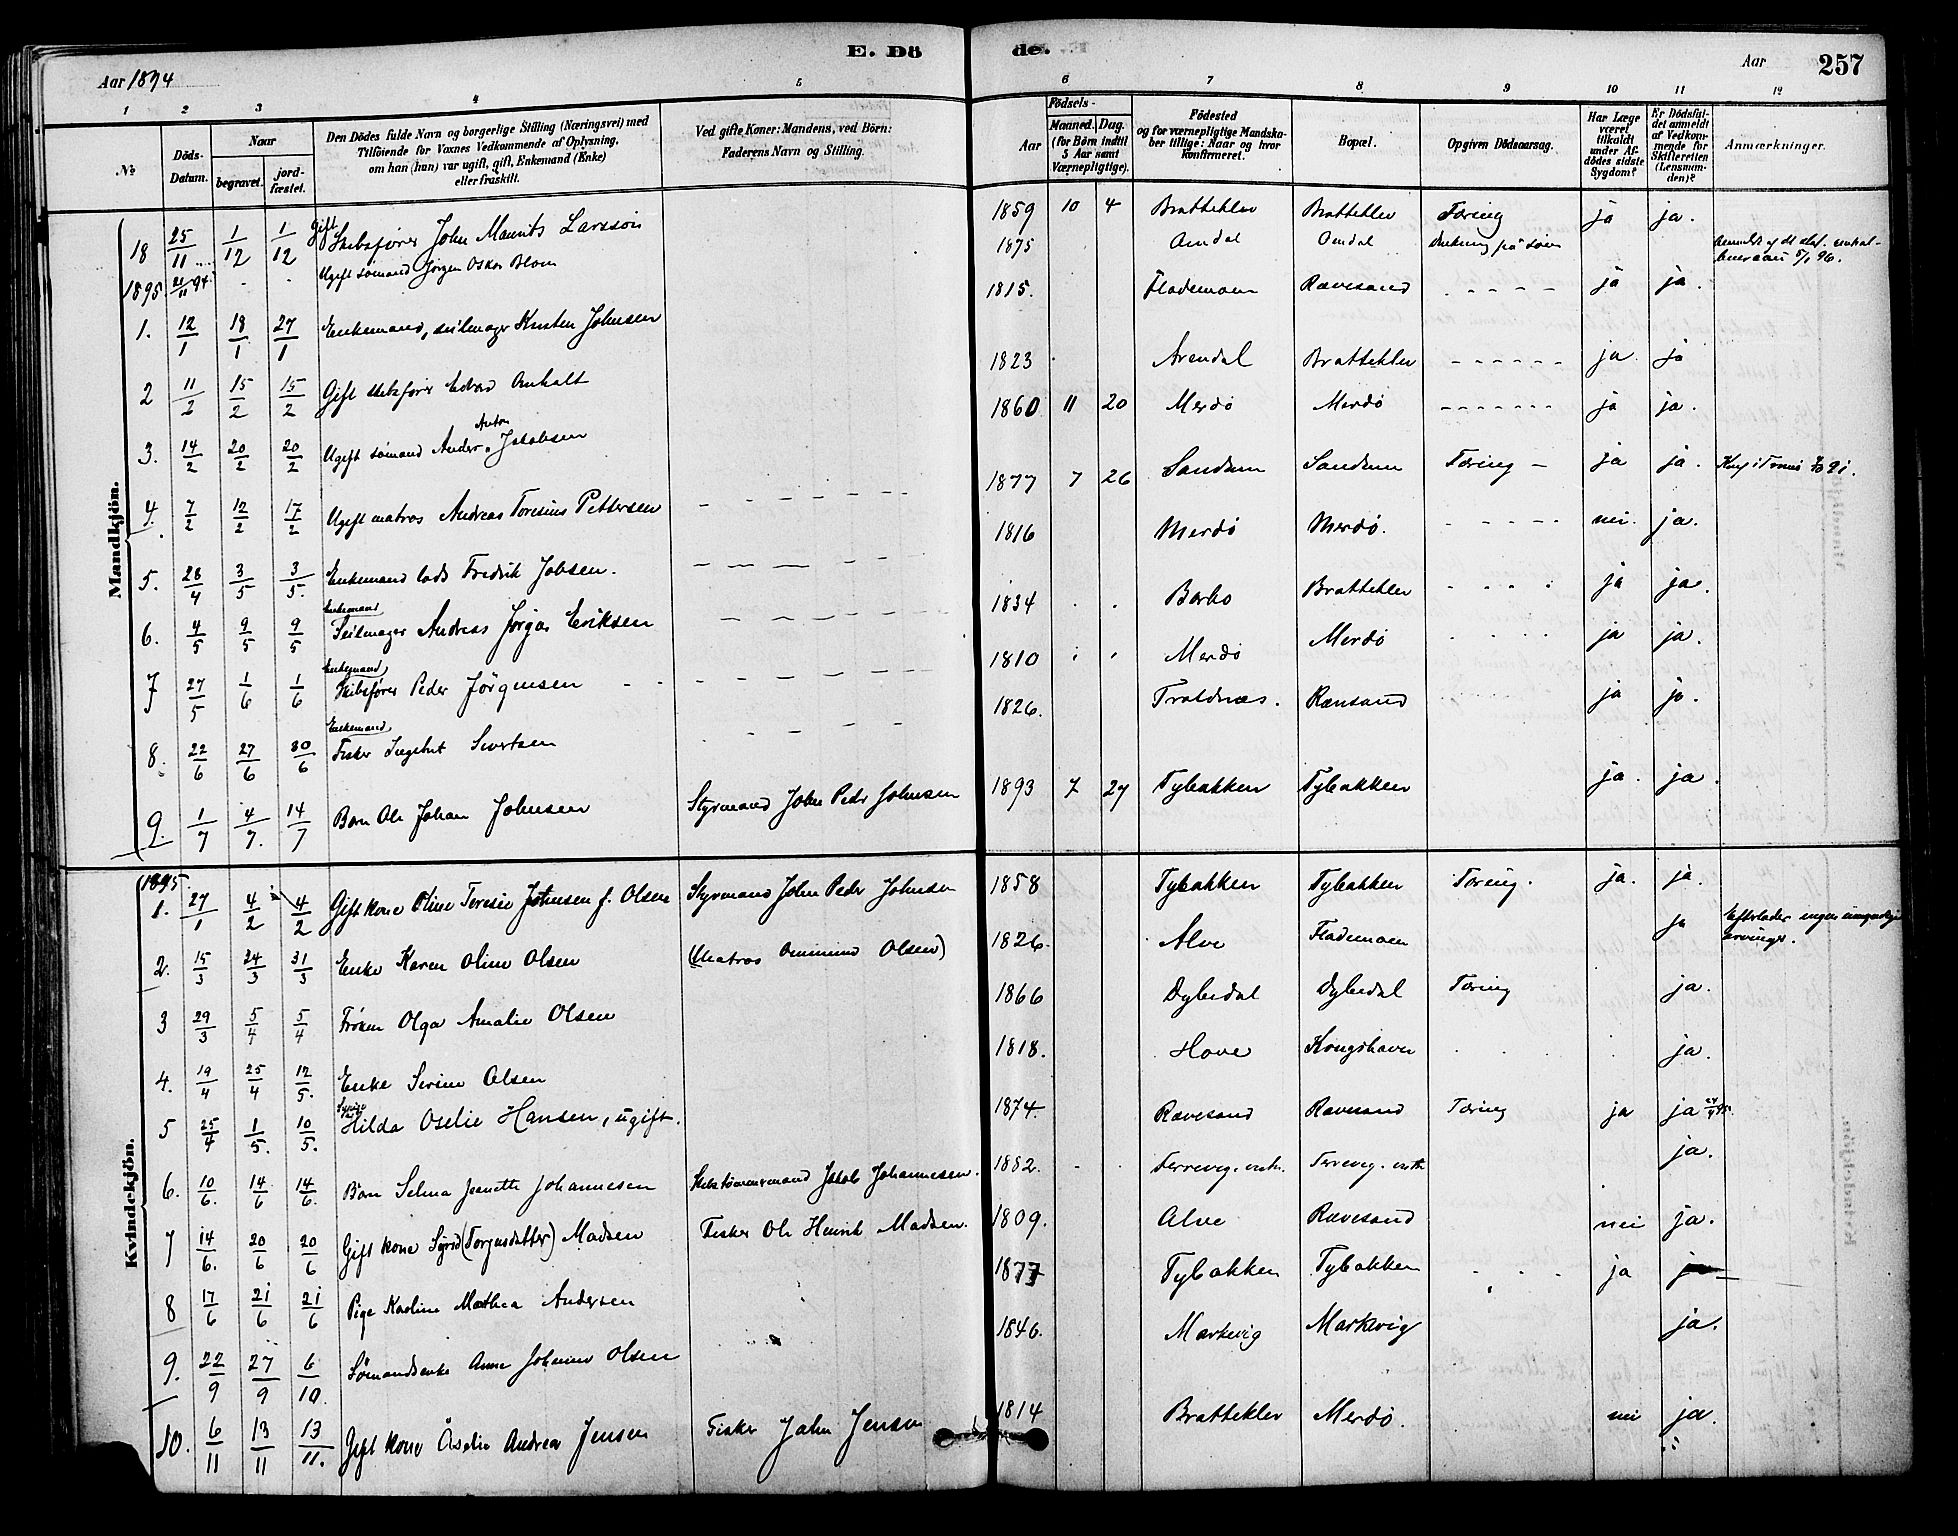 E. Dö
de.
Aar 1894
Aar
257
1 2 3 4 5 6 7 8 9 10 11 12
№
Döds-Datum.
Naar
begravet.
jordfæstet.
Den Dödes fulde Navn og borgerlige Stilling (Næringsvei) med
Tilföiende for Voxnes Vedkommende af Oplysning,
om han (hun) var ugift, gift, Enkemand (Enke)
eller fraskilt.
Ved gifte Koner: Mandens, ved Börn:
Faderens Navn og Stilling.
Födsels-
Aar
Maaned. Dag.
(for Børn indtil
5 Aar samt
Værnepligtige).
Födested
og for værnepligtige Mandskaber tillige: Naar og hvor
konfirmeret.
Bopæl.
Opgiven Dödsaarsag.
Har Læge været tilkaldt under Afdödes sidste Sygdom?
Er Dödsfaldet anmeldt af Vedkommende for Skifteretten (Lensmanden)?
Anmærkninger.
Mandkjön.
18 25/11 1/12 1/12 Gift Skibsfører John Maurits Larsson 1859 10 4 Brattekler Brattekler Tæring ja ja.
1895 94 Ugift sømand Jørgen Oskar Blom 1875 på søen
1. 12/1 18/1 27/1 Enkemand, seilmager Knuten Johnsen 1815. Flademoen Rævesand ja ja.
2 11/2 15/2 15/2 Gift skibsfører Edvard Anholt 1823 Arendal Brattekler ja ja
3. 14/2 20/2 20/2 Ugift sømand Anders Anton Jakobsen 1860 11 20 Merdö Merdö ja ja.
4. 7/2 12/2 17/2 Ugift matros Andreas Toresius Pettersen 1877 7 26 Sandum Sandum Tæring ja ja.
5. 28/4 3/5 3/5. Enkemand lods Fredrik Jobsen. 1816 Merdö Merdö. nei. ja.
6. 4/5 9/5 9/5 Enkemand Seilmager Andreas Jørgas Eriksen 1834 Barbo Brattekler ja ja.
7 27/5 1/6 1/6 Enkemand Skibsfører Peder Jörgensen 1810 Merdö Merdö ja ja.
8. 22/6 27/6 30/6 Enkemand Fisker Ingebret Sivertsen 1826. Tratdnæs. Rævsand ja ja.
9. 1/7 4/7. 14/7 Barn Ole Johan Johnsen Styrmand John Peder Johnsen 1893 7 27 Tybakken Tybakken ja. ja.
Kvindekjön.
1895.
1. 27/1 4/2 4/2 Gift kone Oline Teresie Johnsen f. Olsen Styrmand John Peder Johnsen 1858 Tybakken Tybakken Tæring. ja. ja.
2. 15/3 24/3 31/3 Enke Karen Oline Olsen (Matros Ommund Olsen) 1826. Alve Flademoen ja Efterlader ingen umyndige arvinger.
3 29/3 5/4 5/4 Frøken Olga Amalie Olsen 1866 Dybedal Dybedal Tæring ja.
4. 19/4 25/4 12/5. Enke Serine Olsen 1818. Hove Kongshavn ja.
5 25/4 1/5. 10/5. Hilda Oselie Hansen, ugift. 1874. Rævesand Rævesand Tæring ja ja
6. 10/6. 14/6 14/6. Barn Selma Jeanette Johannesen Skibstømmermand Jakob Johannesen. 1882. ja.
7 14/6. 20/6 20/6 Gift kone Syrid (Torgusdatter) Madsen Fisker Ole Henrik Madsen. 1809. Alve Rævesand nei ja.
8 17/6 21/6 21/6 Pige Karoline Mathea Andersen 1877 Tybakken Tybakken ja ja
9. 22/9 27/9 6/10. Sømandsenke Anne Johanne Olsen 1846. Markevig Markevig ja.
10. 6/11 13/11 13/11. Gift kone Åselie Andrea Jensen Fisker John Jensen 1814 Brattekler Merdö. nei ja.